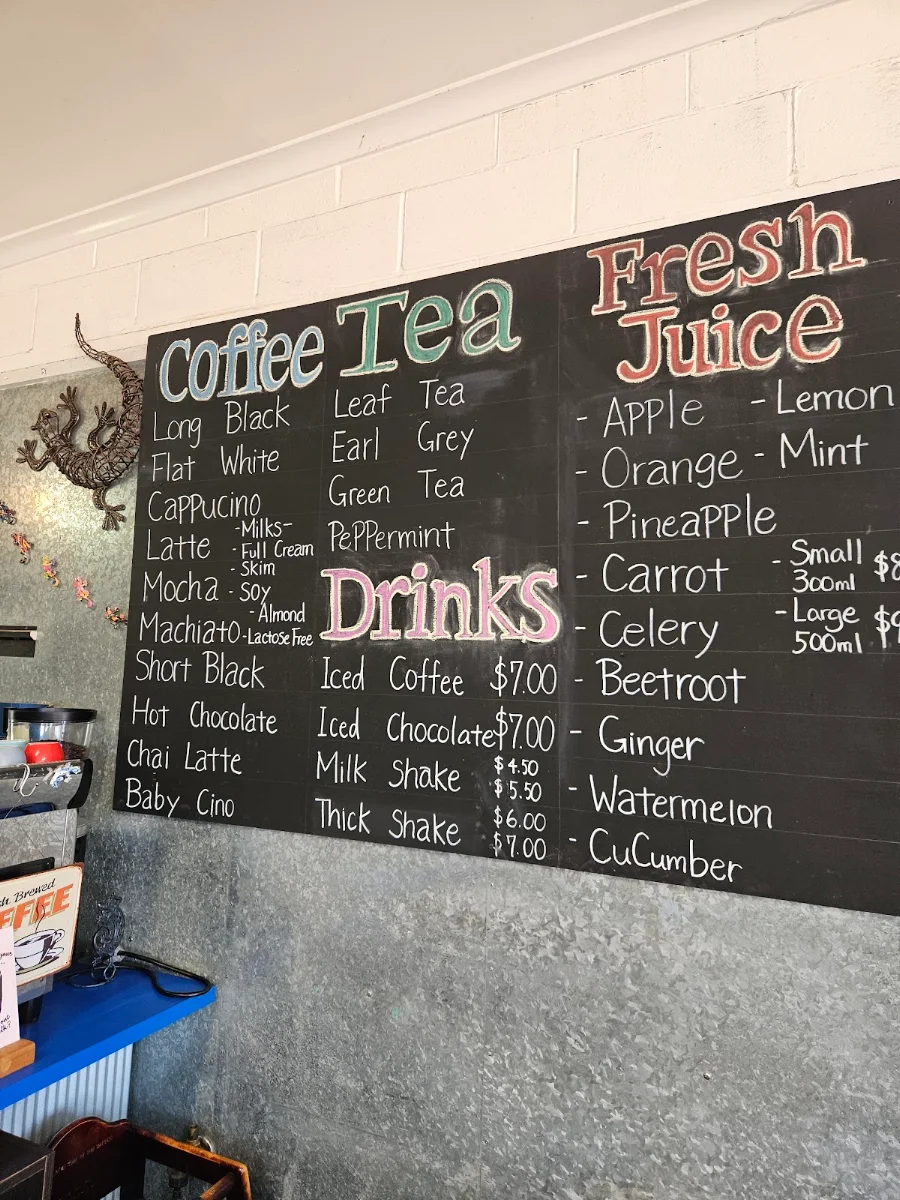 Coffee
Long Black
Flat White
Cappucino
Latte
Mocha
Machiato
-Milks-
- Full Cream
- Skim
- Soy
- Almond
- Lactose Free
Short Black
Hot Chocolate
Chai Latte
Baby Cino
Tea
Leaf Tea
Earl Grey
Green Tea
PePPermint
Drinks
Iced Coffee $7.00
Iced Chocolate $7.00
Milk Shake $4.50
$5.50
Thick Shake $6.00
$7.00
Fresh
Juice
- APPle
- Orange
- PineaPPle
- Carrot
- Celery
- Beetroot
- Ginger
- Watermelon
- CuCumber
- Lemon
- Mint
- Small $8
300ml
- Large $9
500ml
Brewed